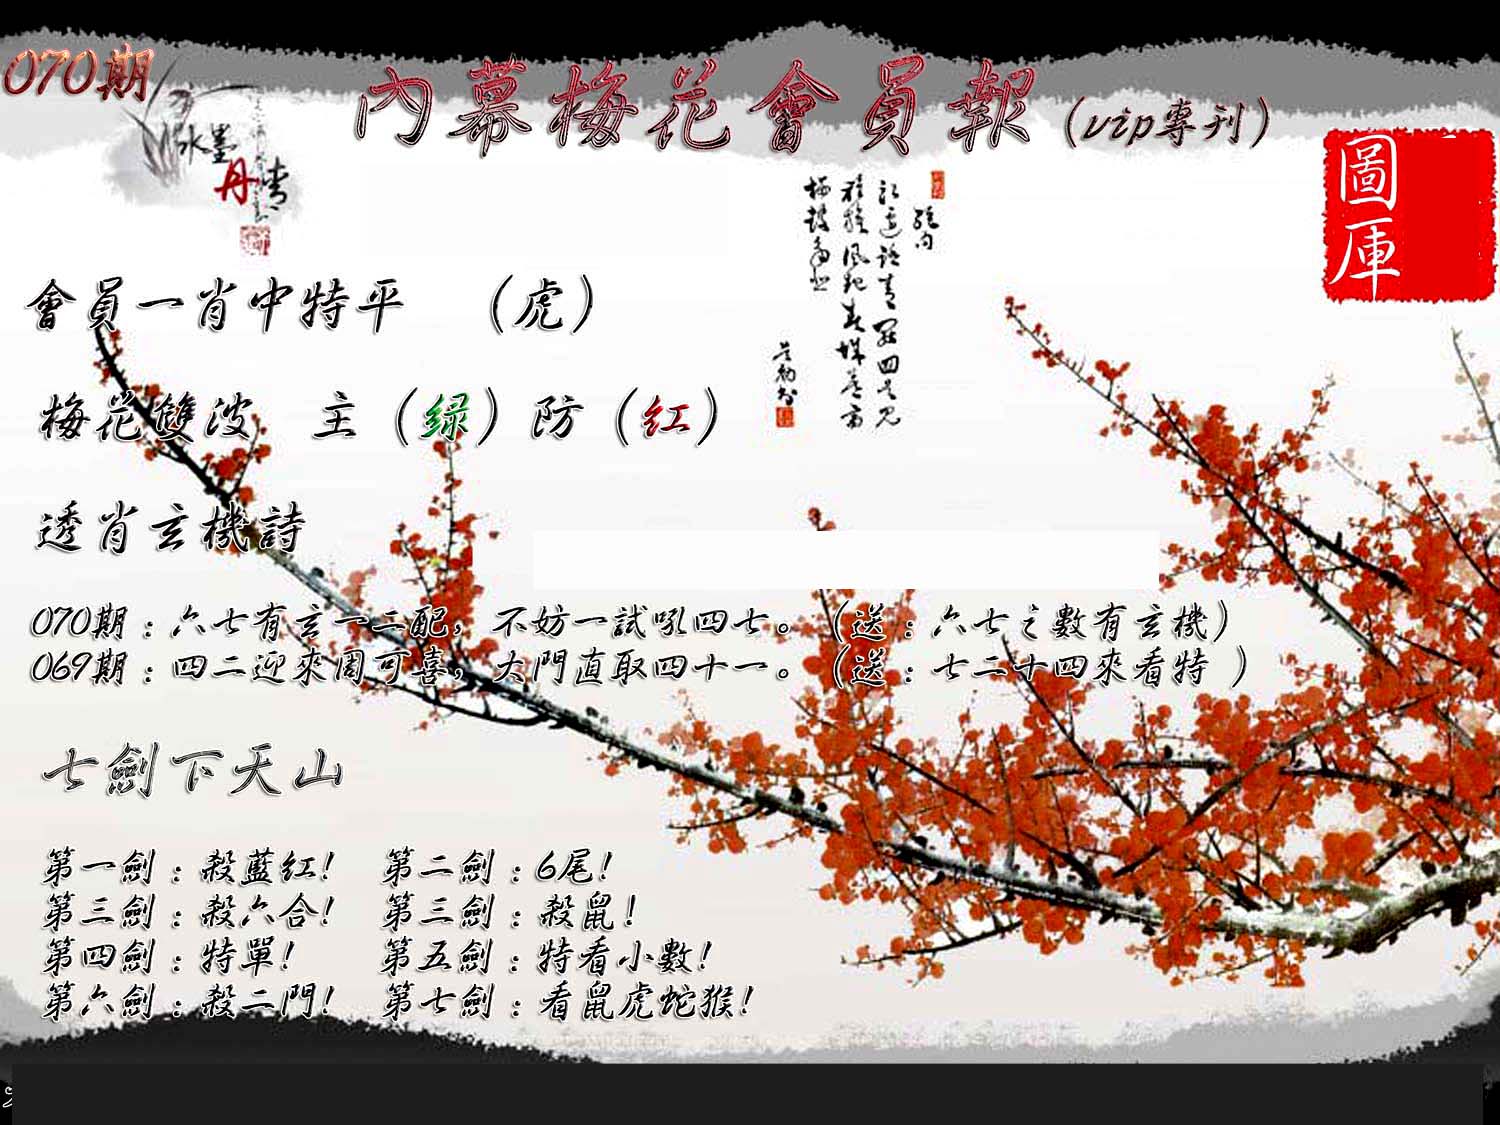 070期
內幕梅花會員報（vip專刊）
水墨
丹青
圖庫
會員一肖中特平 （虎）
梅花雙波 主（绿）防（红）
透肖玄機詩
070期：六七有玄一二配，不妨一試吼四七。（送：六七之數有玄機）
069期：四二迎來周可喜，大門直取四十一。（送：七二十四來看特 ）
七劍下天山
第一劍：殺藍红! 第二劍：6尾!
第三劍：殺六合! 第三劍：殺鼠!
第四劍：特單! 第五劍：特看小數!
第六劍：殺二門! 第七劍：看鼠虎蛇猴!